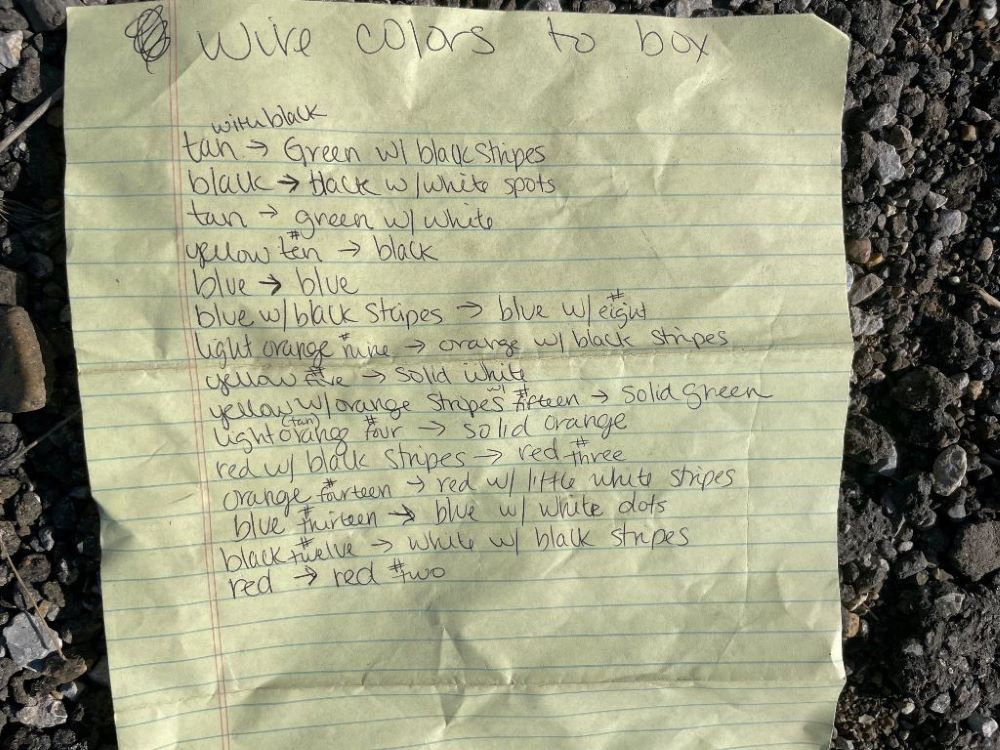 Wire colors to box
with black
tan → Green w/ black stripes
black → black w/white spots
tan → green w/ white
#
yellow ten → black
blue → blue
#
blue w/ black stripes → blue w/ eight
#
light orange nine → orange w/ black stripes
#
yellow five → solid white
w/ #
yellow w/orange stripes fifteen → solid green
(tan) #
light orange four → solid orange
#
red w/ black stripes → red three
#
orange fourteen → red w/ little white stripes
#
blue thirteen → blue w/ white dots
#
black twelve → white w/ black stripes
#
red → red two